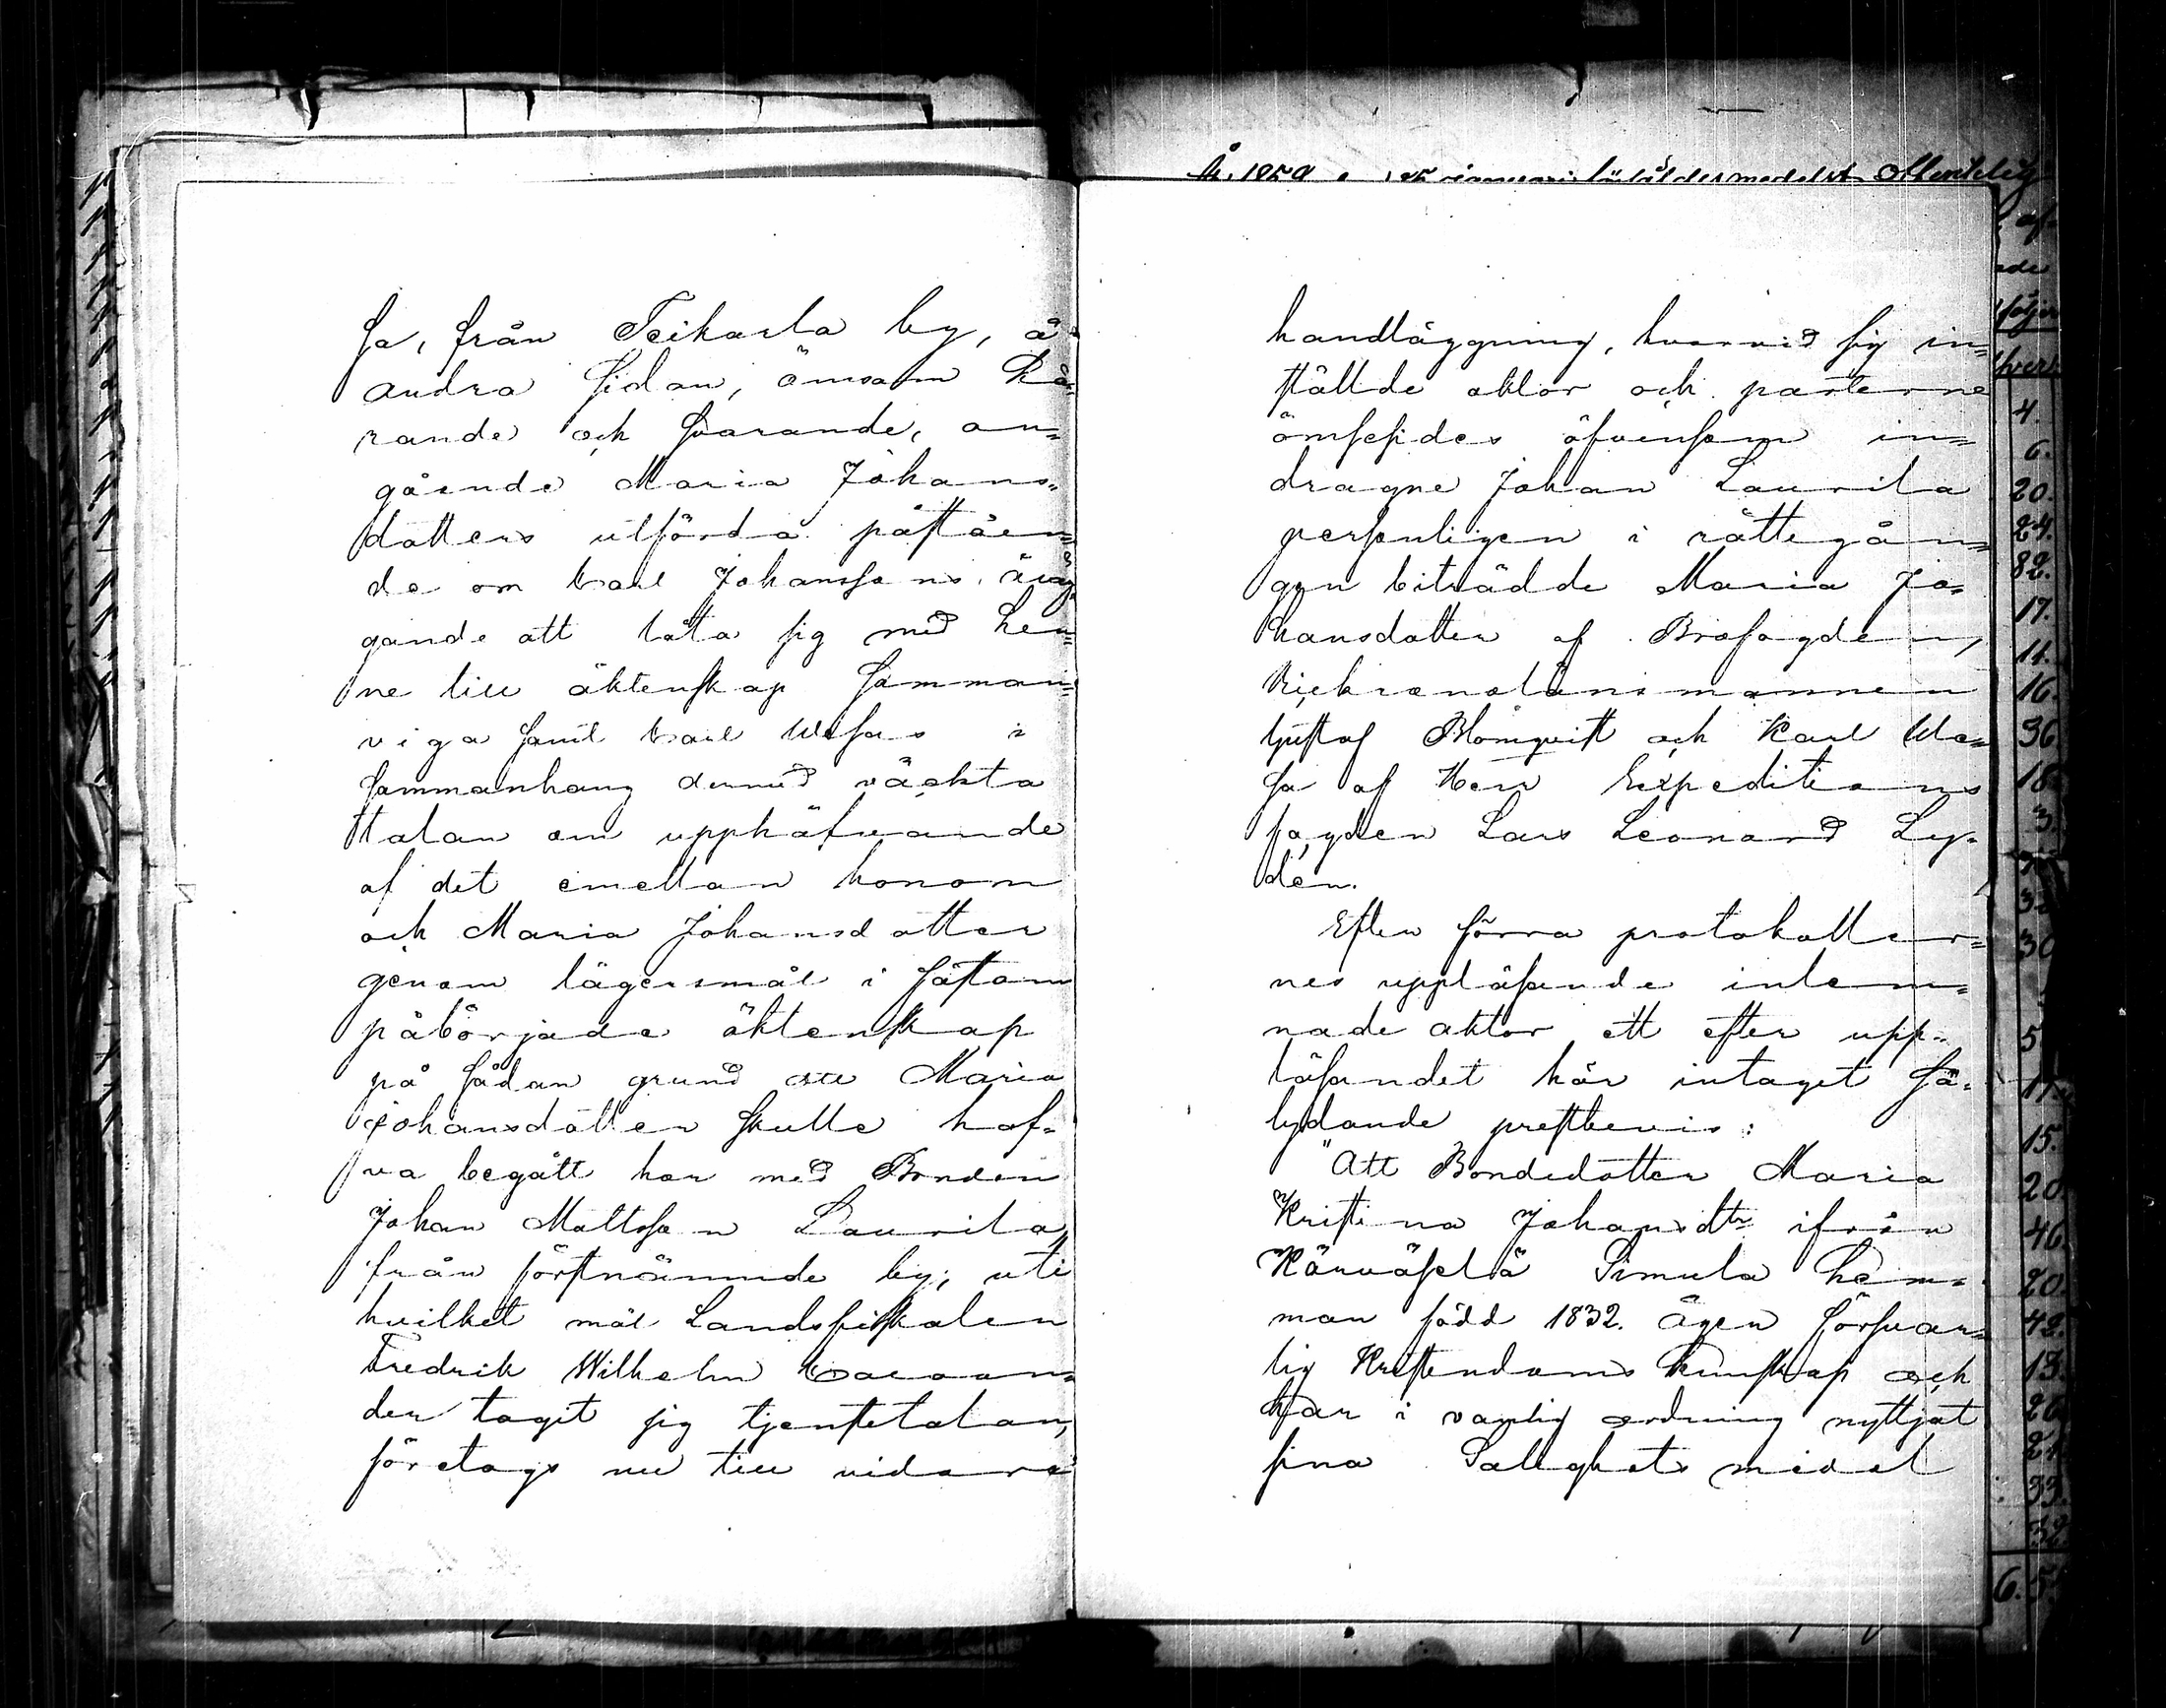 sa, från Teikarla by, å
andra sidan, ömsom kä-
rande och svarande, an-
gående Maria Johans-
dotters utförda påståen-
de om Carl Johanssons ålig-
gande att låta sig med hen-
ne till äktenskap samman-
viga samt Carl Ulasas i
sammanhang dermed väckta
talan om upphäfvande
af det emellan honom
och Maria Johansdotter
genom lägersmål i fästom
påbörjade äktenskap
på sådan grund att Maria
Johansdotter skulle haf-
va begått hor med Bonden
Johan Mattsson Laurila
från förstnämnde by; uti
hvilket mål Landsfiskalen
Fredrik Wilhelm
der tagit sig tjenstetalan,
företogs nu till vidare
Å. 1859 januari Offentelig
handläggning, hvarvid sig in-
ställde aktor och parterne
ömsesides äfvensom in-
dragne Johan Laurila
personligen i rättegån-
gen biträdde Maria Jo-
hansdotter af Brofogden,
Vicekronolänsmannen
Gustaf Blomqvist och Karl Ula-
sa af Herr Expeditions
fogden Lars Leonard Ly-
den.
Efter förra protokoller-
nes uppläsande inlem-
nade aktor ett efter upp-
läsandet här intaget så-
lydande prestbevis:
"Att Bondedotter Maria
Kristina Johansdtr ifrån
Kärväselä Simula hem-
man född 1832. Äger försvar-
lig Kristendoms kunskap och
har i vanlig ordning nyttjat
sina Salighets medel
4.
6.
20.
24.
82.
17.
11.
16.
36
18
3.
30
5
17.
15.
20.
46.
20.
42.
13.
26
24
33.
32
6.5